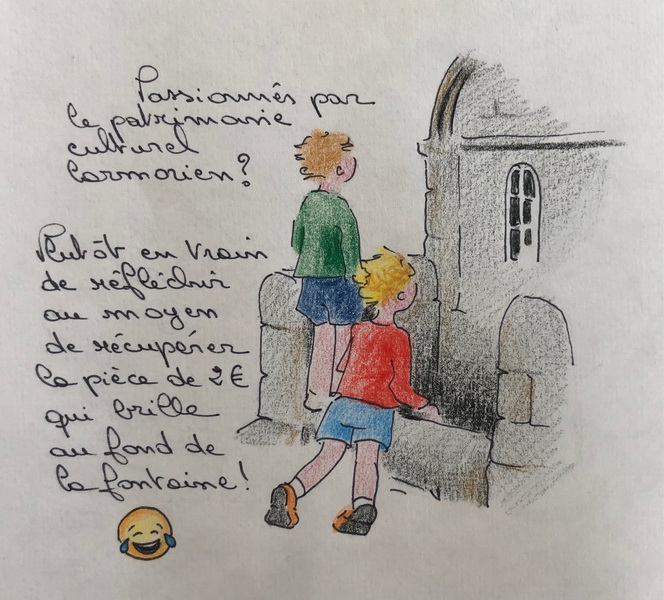 Passionnés par
le patrimoine
culturel
larmorien?
Plutôt en train
de réfléchir
au moyen
de récupérer
la pièce de 2€
qui brille
au fond de
la fontaine!